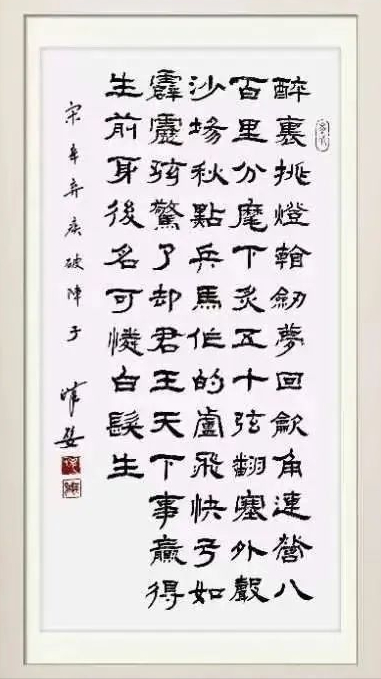 醉裏挑燈看劒夢回吹角連營八
百里分麾下炙五十弦翻塞外聲
沙場秋點兵馬作的盧飛快弓如
霹靂弦驚了却君王天下事贏得
生前身後名可憐白髮生
宋辛弃疾破陣子